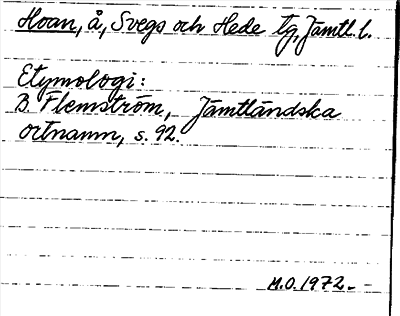 Hoan, å, Svegs och Hede tg, Jämtl. l.
Etymologi:
B. Flemström, Jämtländska
ortnamn, s. 92.
M.O. 1972.